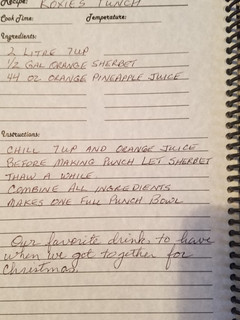 Recipe: ROXIE'S PUNCH
Cook Time: Temperature:
Ingredients:
2 LITRE 7UP
1/2 GAL ORANGE SHERBET
44 OZ ORANGE PINEAPPLE JUICE
Instructions:
CHILL 7UP AND ORANGE JUICE
BEFORE MAKING PUNCH LET SHERBET
THAW A WHILE
COMBINE ALL INGREDIENTS
MAKES ONE FULL PUNCH BOWL
Our favorite drink to have
when we get together for
Christmas.